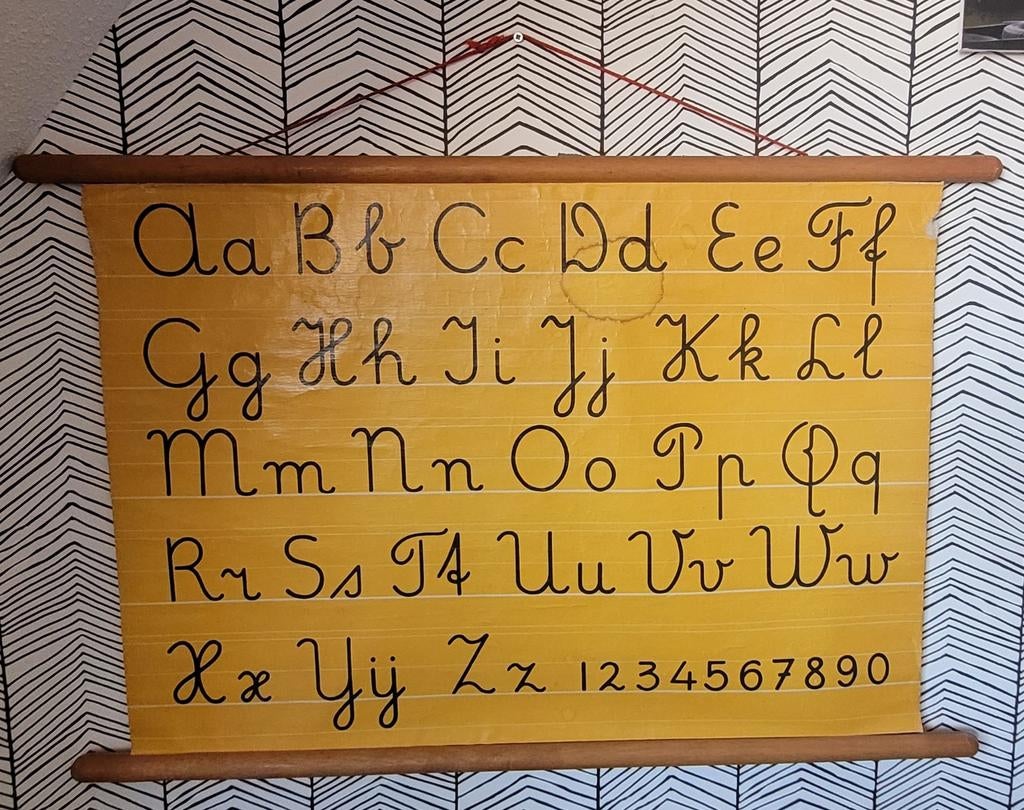 Aa Bb Cc Dd Ee Ff
Gg Hh Ii Jj Kk Ll
Mm Nn Oo Pp Qq
Rr Ss Tt Uu Vv Ww
Xx Yij Zz 1234567890